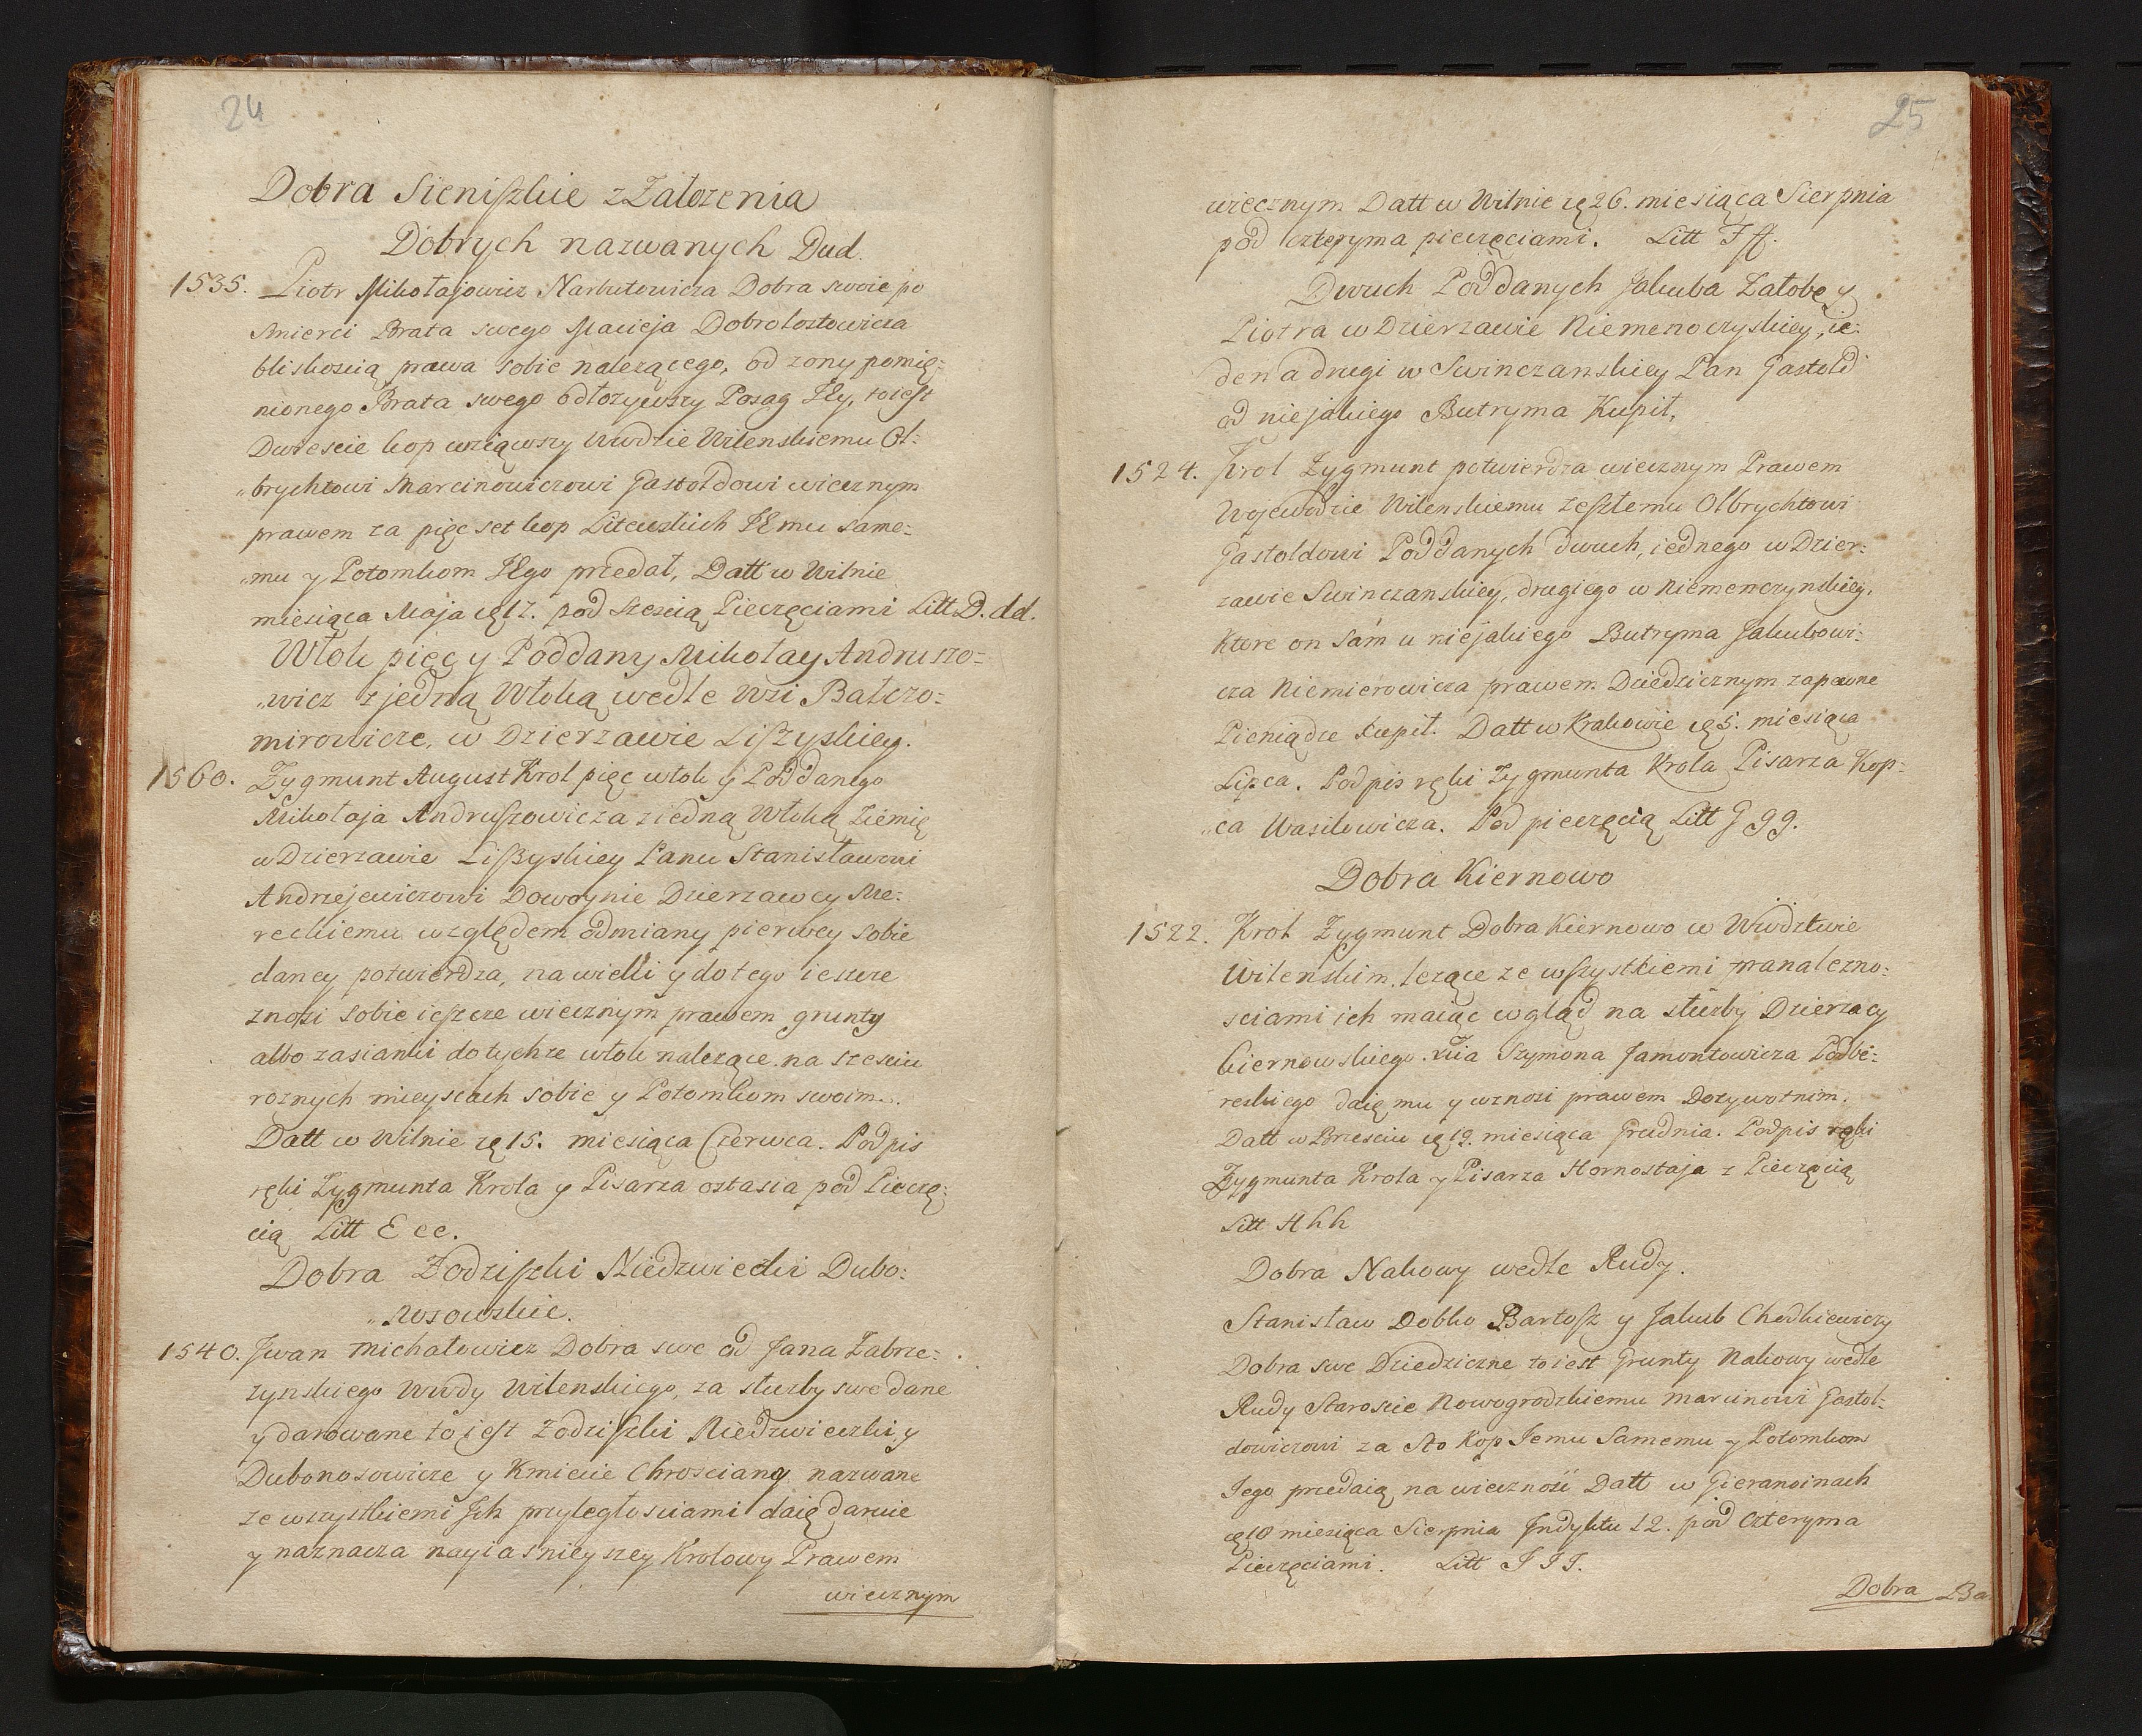 24
Dobra Sieniszkie z Załozenia
Dobrych nazwanych Dud.
1535. Piotr Mikołajowicz Narbutowicza Dobra swoie po
Smierci Brata swego Macieja Dobrolostowicza
bliskoscią prawa sobie nalezącego, od zony pomię-
nionego Brata swego odłozywszy Posag Jey, to iest
Dwiescie kop wziąwszy Wwdzie Wilenskiemu Ol-
„brychtowi Marcinowiczowi Gastoldowi wiecznym
prawem za pięc set kop Litewskich JEmu same-
„mu y Potomkom JEgo przedał, Datt w Wilnie
miesiąca Maja 17. pod Szescią Pieczęciami Litt D. dd.
Włok pięc y Poddany Mikołay Andruszo-
„wicz z jedną Włoką wedle Wsi Bałczo-
mirowicze, w Dzierzawie Liszyskiey.
1560. Zygmunt August Krol pięc włok y Poddanego
Mikołaja Andruszowicza z iedną Włoką Ziemię
w Dzierzawie Liszyskiey Panu Stanisławowi
Andrzejewiczowi Dowoynie Dzierzawcy Me-
reckiemu względem odmiany pierwey sobie
daney potwierdza, na wieki y do tego ieszcze
znosi sobie ieszcze wiecznym prawem grunty
albo zascianki do tychze włok nalezące na szesciu
roznych mieyscach sobie y Potomkom swoim.
Datt w Wilnie 15. miesiąca Czerwca. Podpis
ręki Zygmunta Krola y Pisarza ostasia pod Pieczę-
cią Litt E ee.
Dobra Zodziszki Niedzwiedki Dubo-
„nosowskie.
1540. Jwan Michałowicz Dobra swe od Jana Zabrze-
zynskiego Wwdy Wilenskiego, za słuzby swe dane
y darowane to jest Zodziszki Niedzwieczki, y
Dubonosowicze y Kmiecie Chrosciany nazwane
ze wszystkiemi Jch przyległosciami daię daruie
y naznacza nayiasnieyszey Krolowy Prawem
wiecznym
25
wiecznym Datt w Wilnie 26. miesiąca Sierpnia
pod czteryma pieczęciami. Litt F ff.
Dwuch Poddanych Jakuba Załobę y
Piotra w Dzierzawie Niemenoczyskiey, ie-
den a drugi w Swinczanskiey Pan Gastold
od niejakiego Butryma Kupił,
1524. Krol Zygmunt potwierdza wiecznym Prawem
Wojewodzie Wilenskiemu zeszłemu Olbrychtowi
Gastoldowi Poddanych dwuch, iednego w Dzier-
zawie Swinczanskiey, drugiego w Niemenczynskiey.
Ktore on Sam u niejakiego Butryma Jakubowi-
cza Niemierowicza prawem Dziedzicznym za pewne
Pieniądze kupił. Datt w Krakowie 5. miesiąca
Lipca. Podpis ręki Zygmunta Krola Pisarza Kop-
„ca Wasilowicza. Pod pieczęcią Litt G gg.
Dobra Kiernowo
1522. Krol Zygmunt Dobra Kiernowo w Wwdztwie
Wilenskim lezące ze wszystkiemi przanalezno-
sciami ich maiąc wgląd na słuzby Dzierzacy
kiernowskiego Xcia Szymona Jamontowicza Podbe-
reskiego daię mu y wznosi prawem Dozywotnim.
Datt w Brzesciu 19. miesiąca Grudnia. Podpis ręki
Zygmunta Krola y Pisarza Hornostaja z Pieczęcią
Litt H hh
Dobra Nakowy wedle Rudy.
Stanisław Dobko Bartosz y Jakub Chodkiewiczy
Dobra swe Dziedziczne to iest Grunty Nakowy wedle
Rudy Staroscie Nowogrodzkiemu Marcinowi Gastol-
dowiczowi za Sto Kop Jemu Samemu y Potomkom
Jego przedaią na wiecznosc Datt w Gieranoinach
10 miesiąca Sierpnia Jndyktu 12. pod Czteryma
Pieczęciami. Litt J JJ.
Dobra Ba